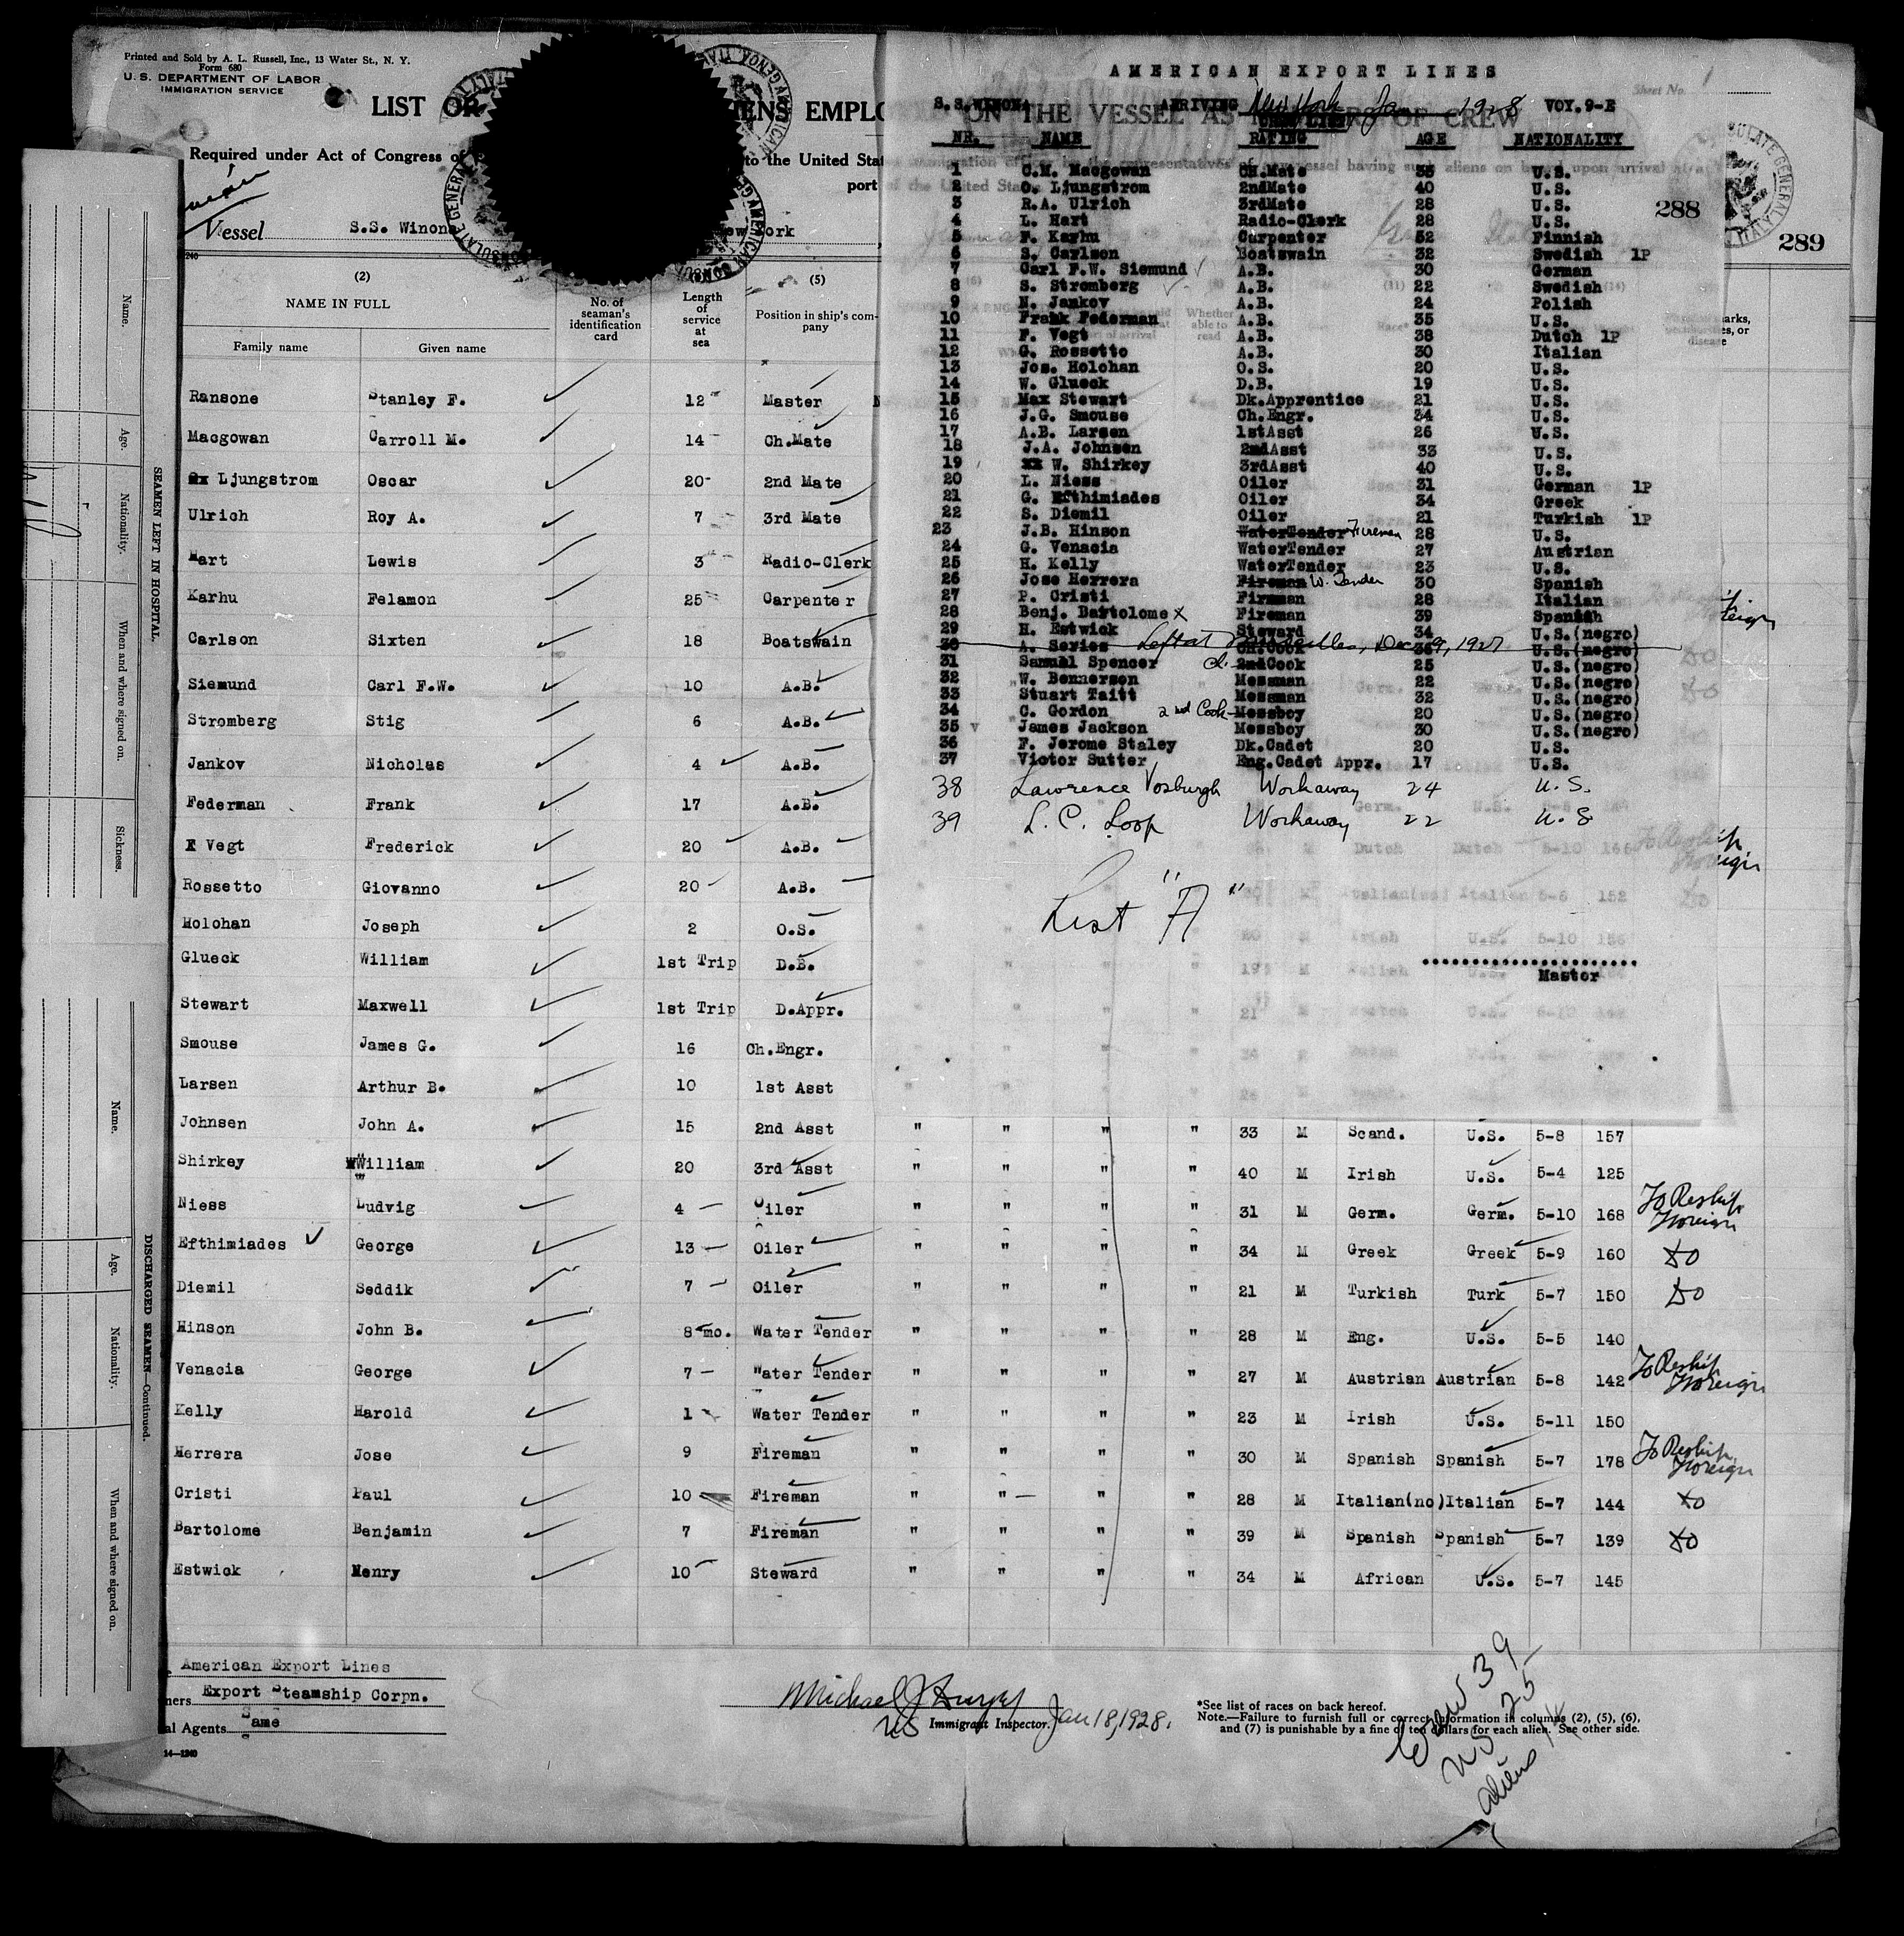 Printed and Sold by A. L. Russell, Inc., 13 Water St., N. Y.
Form 680
U. S. DEPARTMENT OF LABOR
IMMIGRATION SERVICE
LIST OR
ENS EMPLO
ON THE VESSEL AS
OF CREW
Required under Act of Congress of
to the United Sta
port
Vessel S.S. Winona
ew York
(2)
NAME IN FULL
Family name Given name
No. of seaman's identification card
Length of service at sea
(5)
Position in ship's company
Ransone Stanley F. 12 Master
Macgowan Carroll M. 14 Ch.Mate
Ljungstrom Oscar 20 2nd Mate
Ulrich Roy A. 7 3rd Mate
Hart Lewis 3 Radio-Clerk
Karhu Felamon 25 Carpenter
Carlson Sixten 18 Boatswain
Siemund Carl F.W. 10 A.B.
Stromberg Stig 6 A.B.
Jankov Nicholas 4 A.B.
Federman Frank 17 A.B.
Vegt Frederick 20 A.B.
Rossetto Giovanno 20 A.B.
Holohan Joseph 2 O.S.
Glueck William 1st Trip D.B.
Stewart Maxwell 1st Trip D.Appr.
Smouse James G. 16 Ch.Engr.
Larsen Arthur B. 10 1st Asst
Johnsen John A. 15 2nd Asst " " " " 33 M Scand. U.S. 5-8 157
Shirkey William 20 3rd Asst " " " " 40 M Irish U.S. 5-4 125
Niess Ludvig 4 Oiler " " " " 31 M Germ. Germ. 5-10 168 To Reship Foreign
Efthimiades George 13 Oiler " " " " 34 M Greek Greek 5-9 160 do
Diemil Seddik 7 Oiler " " " " 21 M Turkish Turk 5-7 150 do
Hinson John B. 8 mo. Water Tender " " " " 28 M Eng. U.S. 5-5 140
Venacia George 7 Water Tender " " " " 27 M Austrian Austrian 5-8 142 To Reship Foreign
Kelly Harold 1 Water Tender " " " " 23 M Irish U.S. 5-11 150
Herrera Jose 9 Fireman " " " " 30 M Spanish Spanish 5-7 178 To Reship Foreign
Cristi Paul 10 Fireman " " " " 28 M Italian(no) Italian 5-7 144 do
Bartolome Benjamin 7 Fireman " " " " 39 M Spanish Spanish 5-7 139 do
Estwick Henry 10 Steward " " " " 34 M African U.S. 5-7 145
American Export Lines
ners Export Steamship Corpn.
al Agents Same
14—1240
US Immigrant Inspector. Jan 18, 1928.
*See list of races on back hereof.
Note.—Failure to furnish full or correct information in columns (2), (5), (6),
and (7) is punishable by a fine of ten dollars for each alien. See other side.
Crew 39
US 25
aliens 14
AMERICAN EXPORT LINES
Sheet No. 1
S.S.WINONA ARRIVING New York Jan 1928 VOY.9-E
NR. NAME RATING AGE NATIONALITY
1 C.M. Macgowan Ch.Mate 35 U.S.
2 O. Ljungstrom 2ndMate 40 U.S.
3 R.A. Ulrich 3rdMate 28 U.S.
4 L. Hart Radio-Clerk 28 U.S.
5 F. Kayhu Carpenter 52 Finnish
6 S. Carlson Boatswain 32 Swedish 1P
7 Carl F.W. Siemund A.B. 30 German
8 S. Stromberg A.B. 22 Swedish
9 N. Jankov A.B. 24 Polish
10 Frank Federman A.B. 35 U.S.
11 F. Vegt A.B. 38 Dutch 1P
12 G. Rossetto A.B. 30 Italian
13 Jos. Holohan O.S. 20 U.S.
14 W. Glueck D.B. 19 U.S.
15 Max Stewart Dk.Apprentice 21 U.S.
16 J.G. Smouse Ch.Engr. 34 U.S.
17 A.B. Larsen 1stAsst 26 U.S.
18 J.A. Johnsen 2ndAsst 33 U.S.
19 W. Shirkey 3rdAsst 40 U.S.
20 L. Niess Oiler 31 German 1P
21 G. Efthimiades Oiler 34 Greek
22 S. Diemil Oiler 21 Turkish 1P
23 J.B. Hinson WaterTender Fireman 28 U.S.
24 G. Venacia WaterTender 27 Austrian
25 H. Kelly WaterTender 23 U.S.
26 Jose Herrera Fireman W. Tender 30 Spanish
27 P. Cristi Fireman 28 Italian
28 Benj. Bartolome X Fireman 39 Spanish
29 H. Estwick Steward 34 U.S.(negro)
30 A. Series Left at Marseilles, Dec 9, 1927 Ch.Cook U.S.(negro)
31 Samuel Spencer Ch. 2ndCook 25 U.S.(negro)
32 W. Bennerson Messman 22 U.S.(negro)
33 Stuart Taitt Messman 32 U.S.(negro)
34 C. Gordon 2nd Cook Messboy 20 U.S.(negro)
35 James Jackson Messboy 30 U.S.(negro)
36 F. Jerome Staley Dk.Cadet 20 U.S.
37 Victor Sutter Eng.Cadet Appr. 17 U.S.
38 Lawrence Vosburgh Workaway 24 U.S.
39 L. C. Loop Workaway 22 U.S
List "A"
Master
288
289
SEAMEN LEFT IN HOSPITAL.
Name.
Age.
Nationality.
When and where signed on.
Sickness.
DISCHARGED SEAMEN—Continued.
Name.
Age.
Nationality.
When and where signed on.